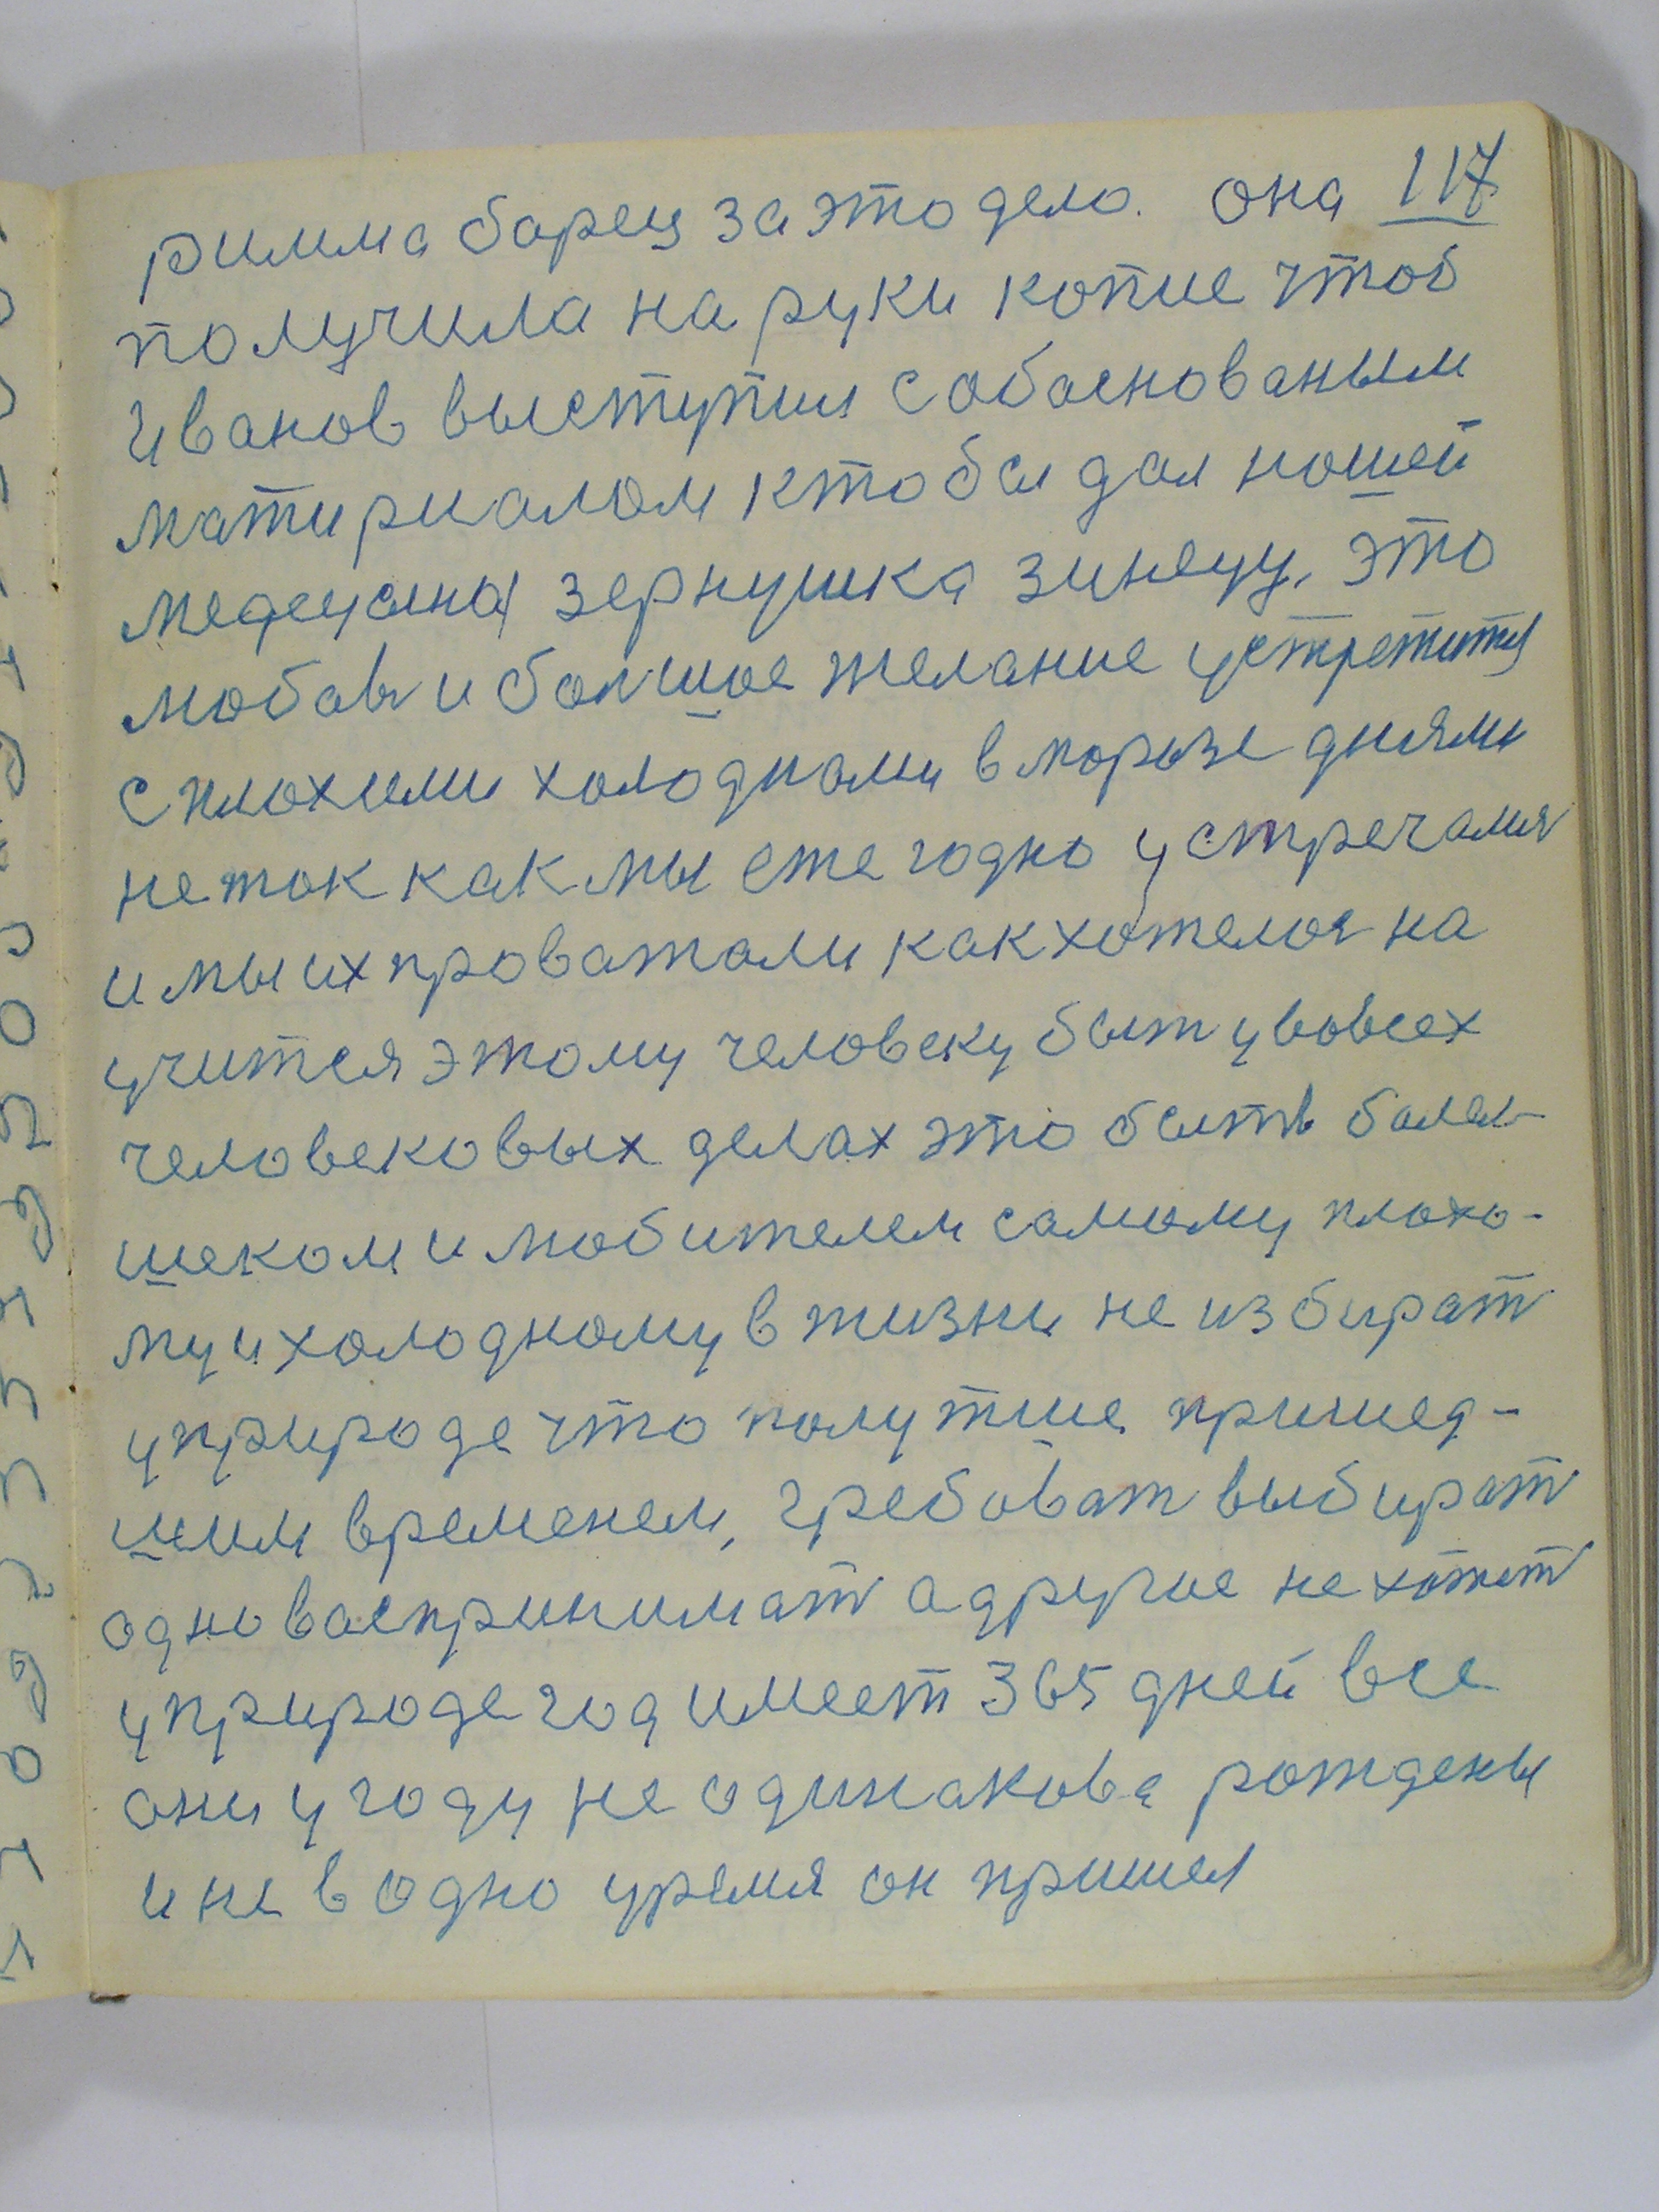 римма борец за это дело. она 117
получила на руки копие чтоб
Иванов выступил с обоснованым
матириалом кто бы дал нашей
медецына зернушка зинецу, это
любовь и болшое желание устретится
с плохими холоднами в морозе днями
не так как мы ежегодно устречаля
и мы их проважали как хотелоя на
учится этому человеку быт у вовсех
человековых делах это быть балел-
шеком и любителем самому плохо-
му и холодному в жизни не избират
у природе что полутше пришед-
шим временем, требоват выбират
одно воспринимат а другие не хотет
у природе год имеет 365 дней все
они у году не одинакова рождены
и не в одно уремя он пришел